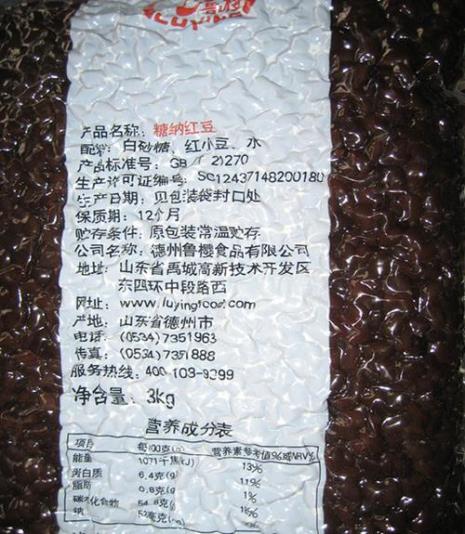 产品名称: 糖纳红豆
配料: 白砂糖、红小豆、水
产品标准号: GB/T 21270
生产许可证编号: SC12437148200180
生产日期: 见包装袋封口处
保质期: 12个月
贮存条件: 原包装常温贮存
公司名称: 德州鲁樱食品有限公司
地址: 山东省禹城高新技术开发区
东四环中段路西
网址: www.luyingfood.com
产地: 山东省德州市
电话: (0534)7351963
传真: (0534)7351888
服务热线: 400-103-9299
净含量: 3kg
营养成分表
项目 每100克(g) 营养素参考值%或NRV%
能量 1071千焦(kJ) 13%
蛋白质 6.4克(g) 11%
脂肪 0.8克(g) 1%
碳水化合物
钠